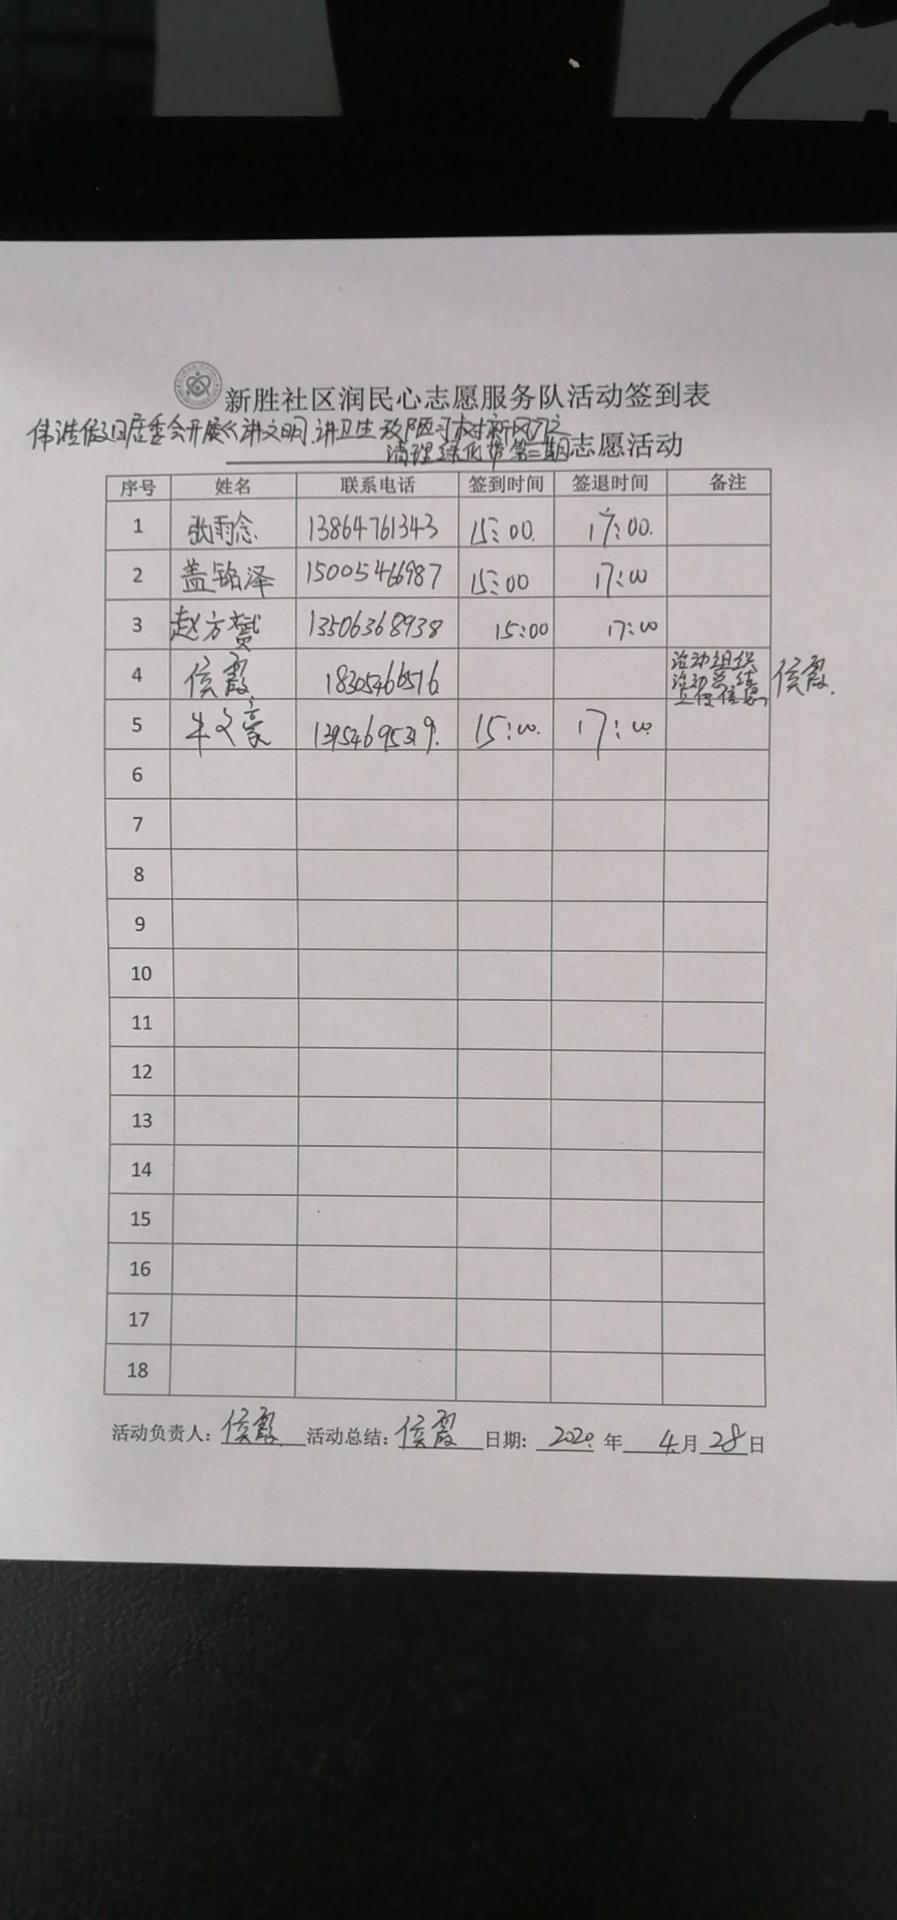 新胜社区润民心志愿服务队活动签到表
伟浩假日居委会开展《讲文明 讲卫生 改陋习 树新风》之
清理绿化带第三期志愿活动
序号 姓名 联系电话 签到时间 签退时间 备注
1 张雨念 13864761343 15:00 17:00
2 盖铭泽 15005466987 15:00 17:00
3 赵方赟 13506368938 15:00 17:00
4 侯霞 18305466516 活动组织 侯霞
活动总结
上传信息
5 牛文豪 13954695319 15:00 17:00
6
7
8
9
10
11
12
13
14
15
16
17
18
活动负责人：侯霞 活动总结：侯霞 日期：2020年4月28日